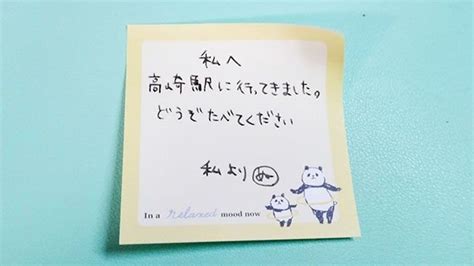 私へ
高崎駅に行ってきました。
どうぞたべてください
私より ぬ
In a relaxed mood now